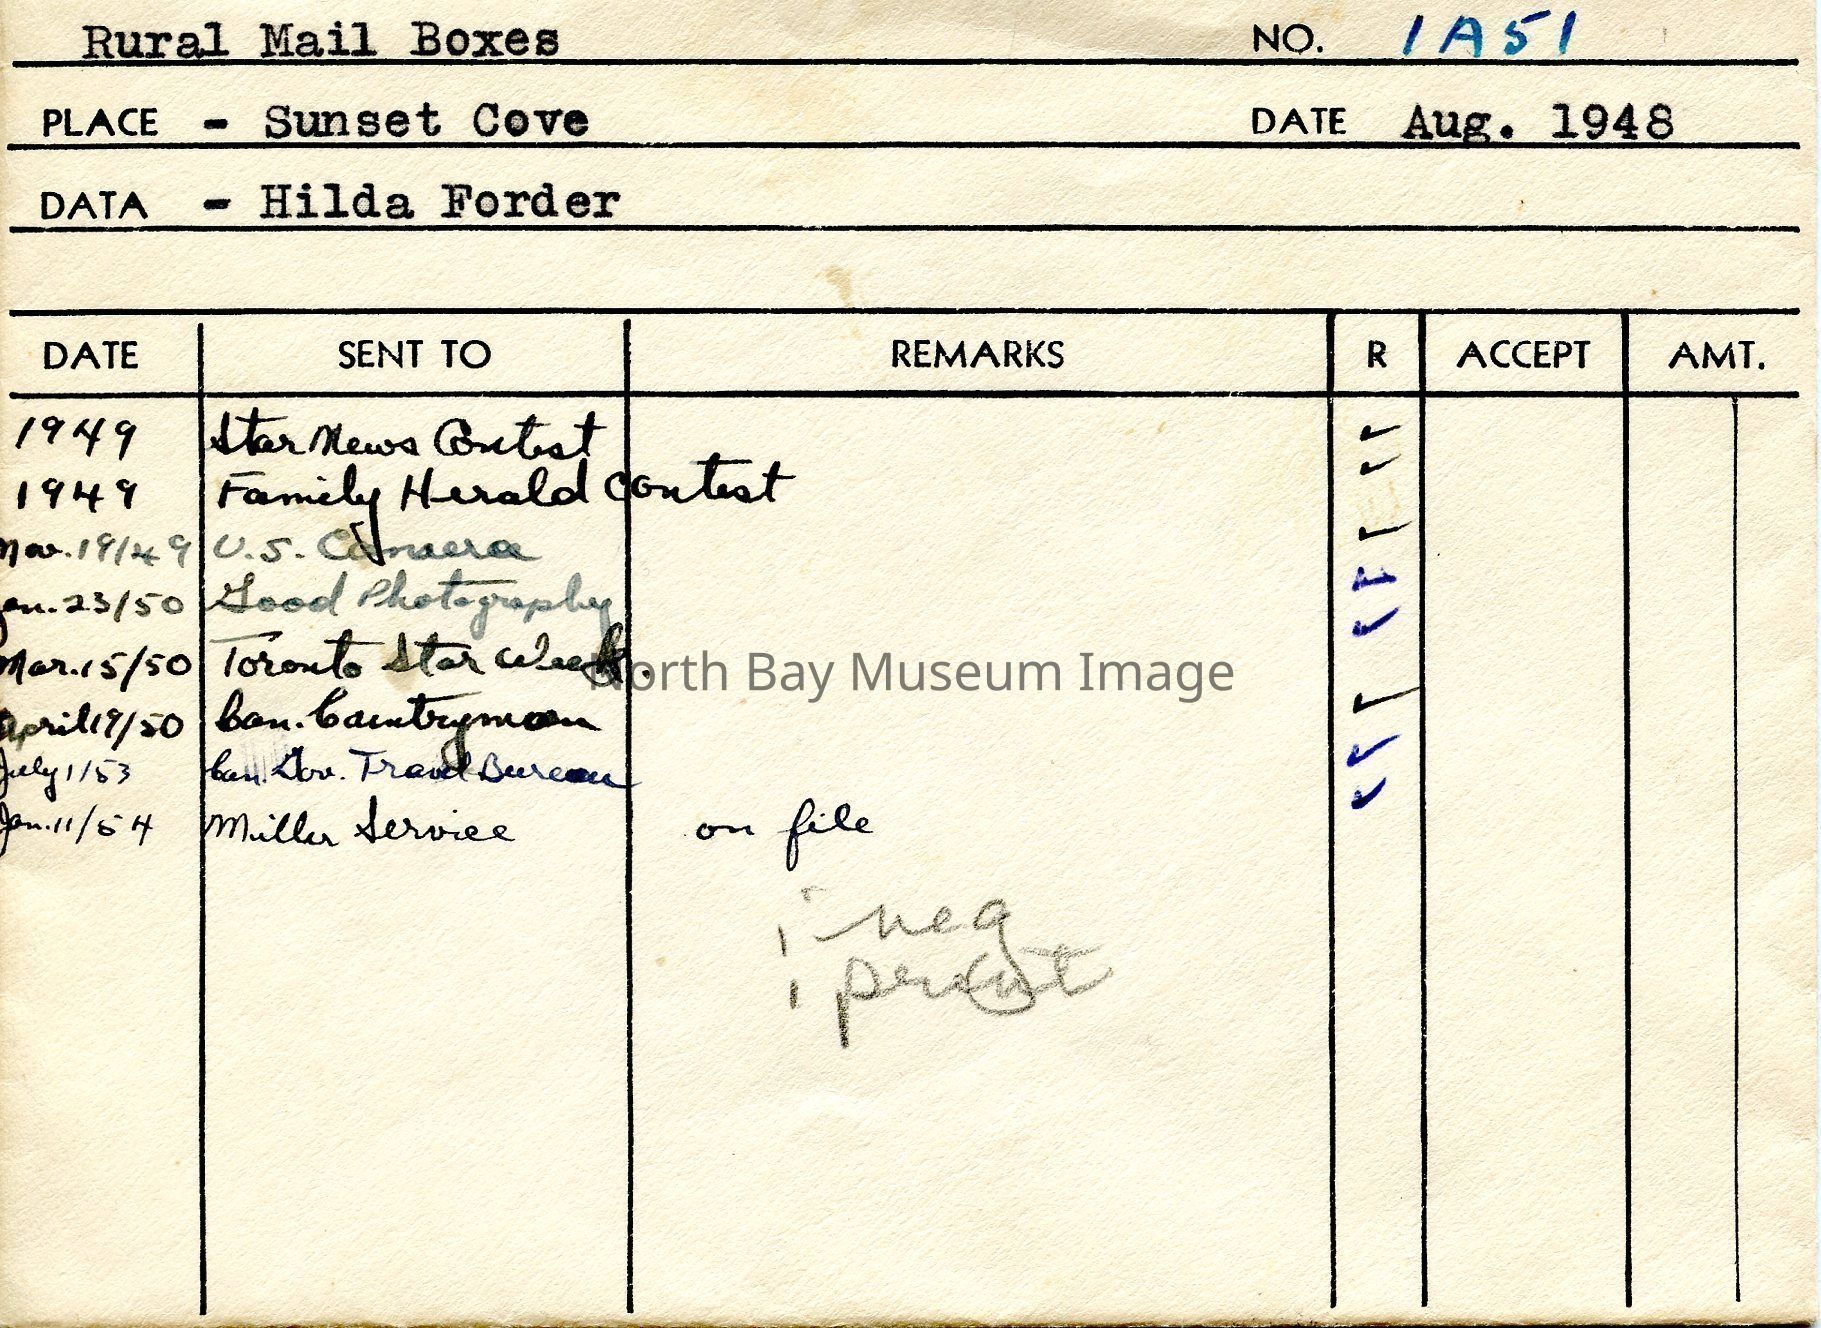 Rural Mail Boxes NO. 1A51
PLACE - Sunset Cove DATE Aug. 1948
DATA - Hilda Forder
DATE SENT TO REMARKS R ACCEPT AMT.
1949 Star News Contest ✓
1949 Family Herald Contest ✓
Nov. 19/49 U.S. Camera ✓
Jan. 23/50 Good Photography ✓
Mar. 15/50 Toronto Star Week. ✓
April 19/50 Can. Countryman ✓
July 1/53 Can. Gov. Travel Bureau ✓
Jan. 11/54 Miller Service on file ✓
North Bay Museum Image
1 neg
1 print